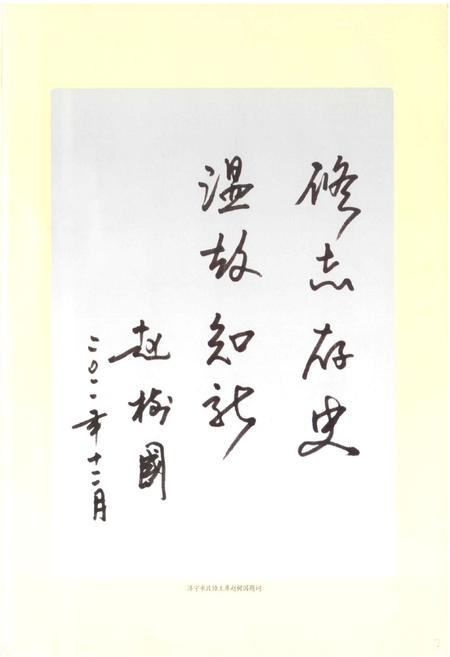 修志存史
温故知新
赵樹國
二〇一一年十二月
济宁市政协主席赵树国题词